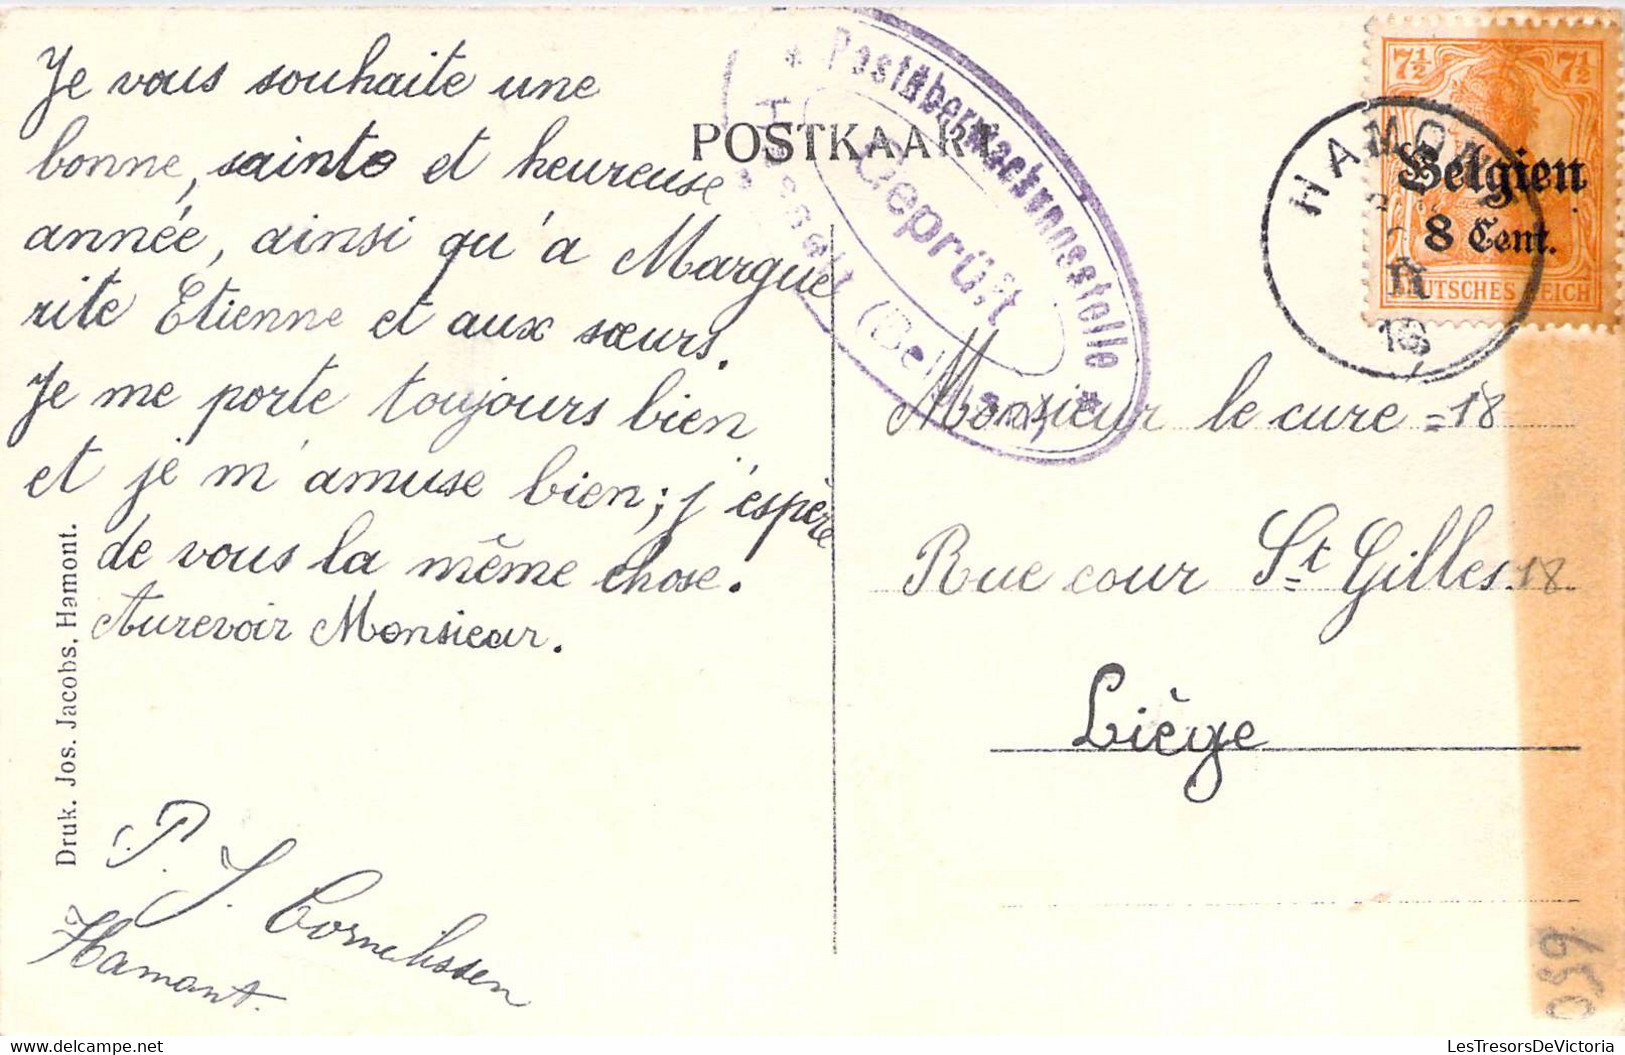 Je vous souhaite une
bonne, sainte et heureuse
année, ainsi qu'à Margue
rite Etienne et aux sœurs.
Je me porte toujours bien
et je m'amuse bien; j'espère
de vous la même chose.
Aurevoir Monsieur.
P. J. Cornelissen
Hamont.
Druk. Jos. Jacobs, Hamont.
POSTKAART
* Postüberwachungsstelle *
Geprüft
HAMONT
18
7½ 7½
Belgien
8 Cent.
DEUTSCHES REICH
Monsieur le cure = 18
Rue cour St Gilles 18
Liège
059
delcampe.net
LesTresorsDeVictoria